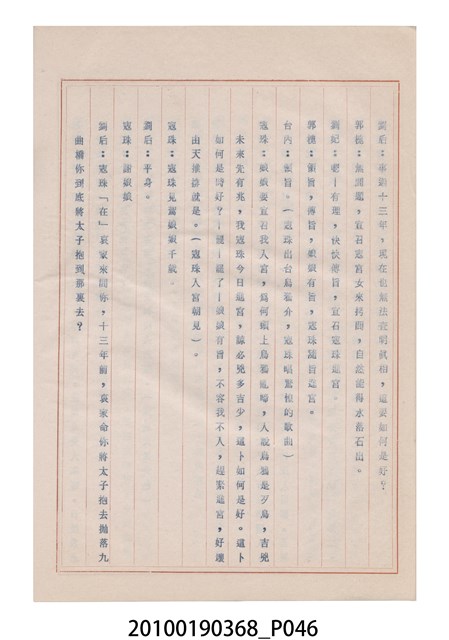 劉后：事隔十三年，現在也無法查明眞相，這要如何是好？
郭槐：無問題，宣召寇宮女來拷問，自然能得水落石出。
劉妃：嗯！有理，快快傳旨，宣召寇珠進宮。
郭槐：領旨，傳旨，娘娘有旨，寇珠隨旨進宮。
台內：領旨。（寇珠出台烏鴉介，寇珠唱驚惶的歌曲）
寇珠：娘娘要宣召我入宮，爲何頭上烏鴉亂啼，人說烏鴉是歹鳥，吉兇
未來先有兆，我寇珠今日進宮，諒必兇多吉少，這卜如何是好。這卜
如何是好？！罷！罷了！娘娘有旨，不容我不入，趕緊進宮，好壞
由天推排就是。（寇珠入宮朝見）。
寇珠：寇珠見駕娘娘千歲。
劉后：平身。
寇珠：謝娘娘
劉后：寇珠「在」哀家來問你，十三年前，哀家命你將太子抱去拋落九
曲橋你到底將太子抱到那裏去？
20100190368_P046